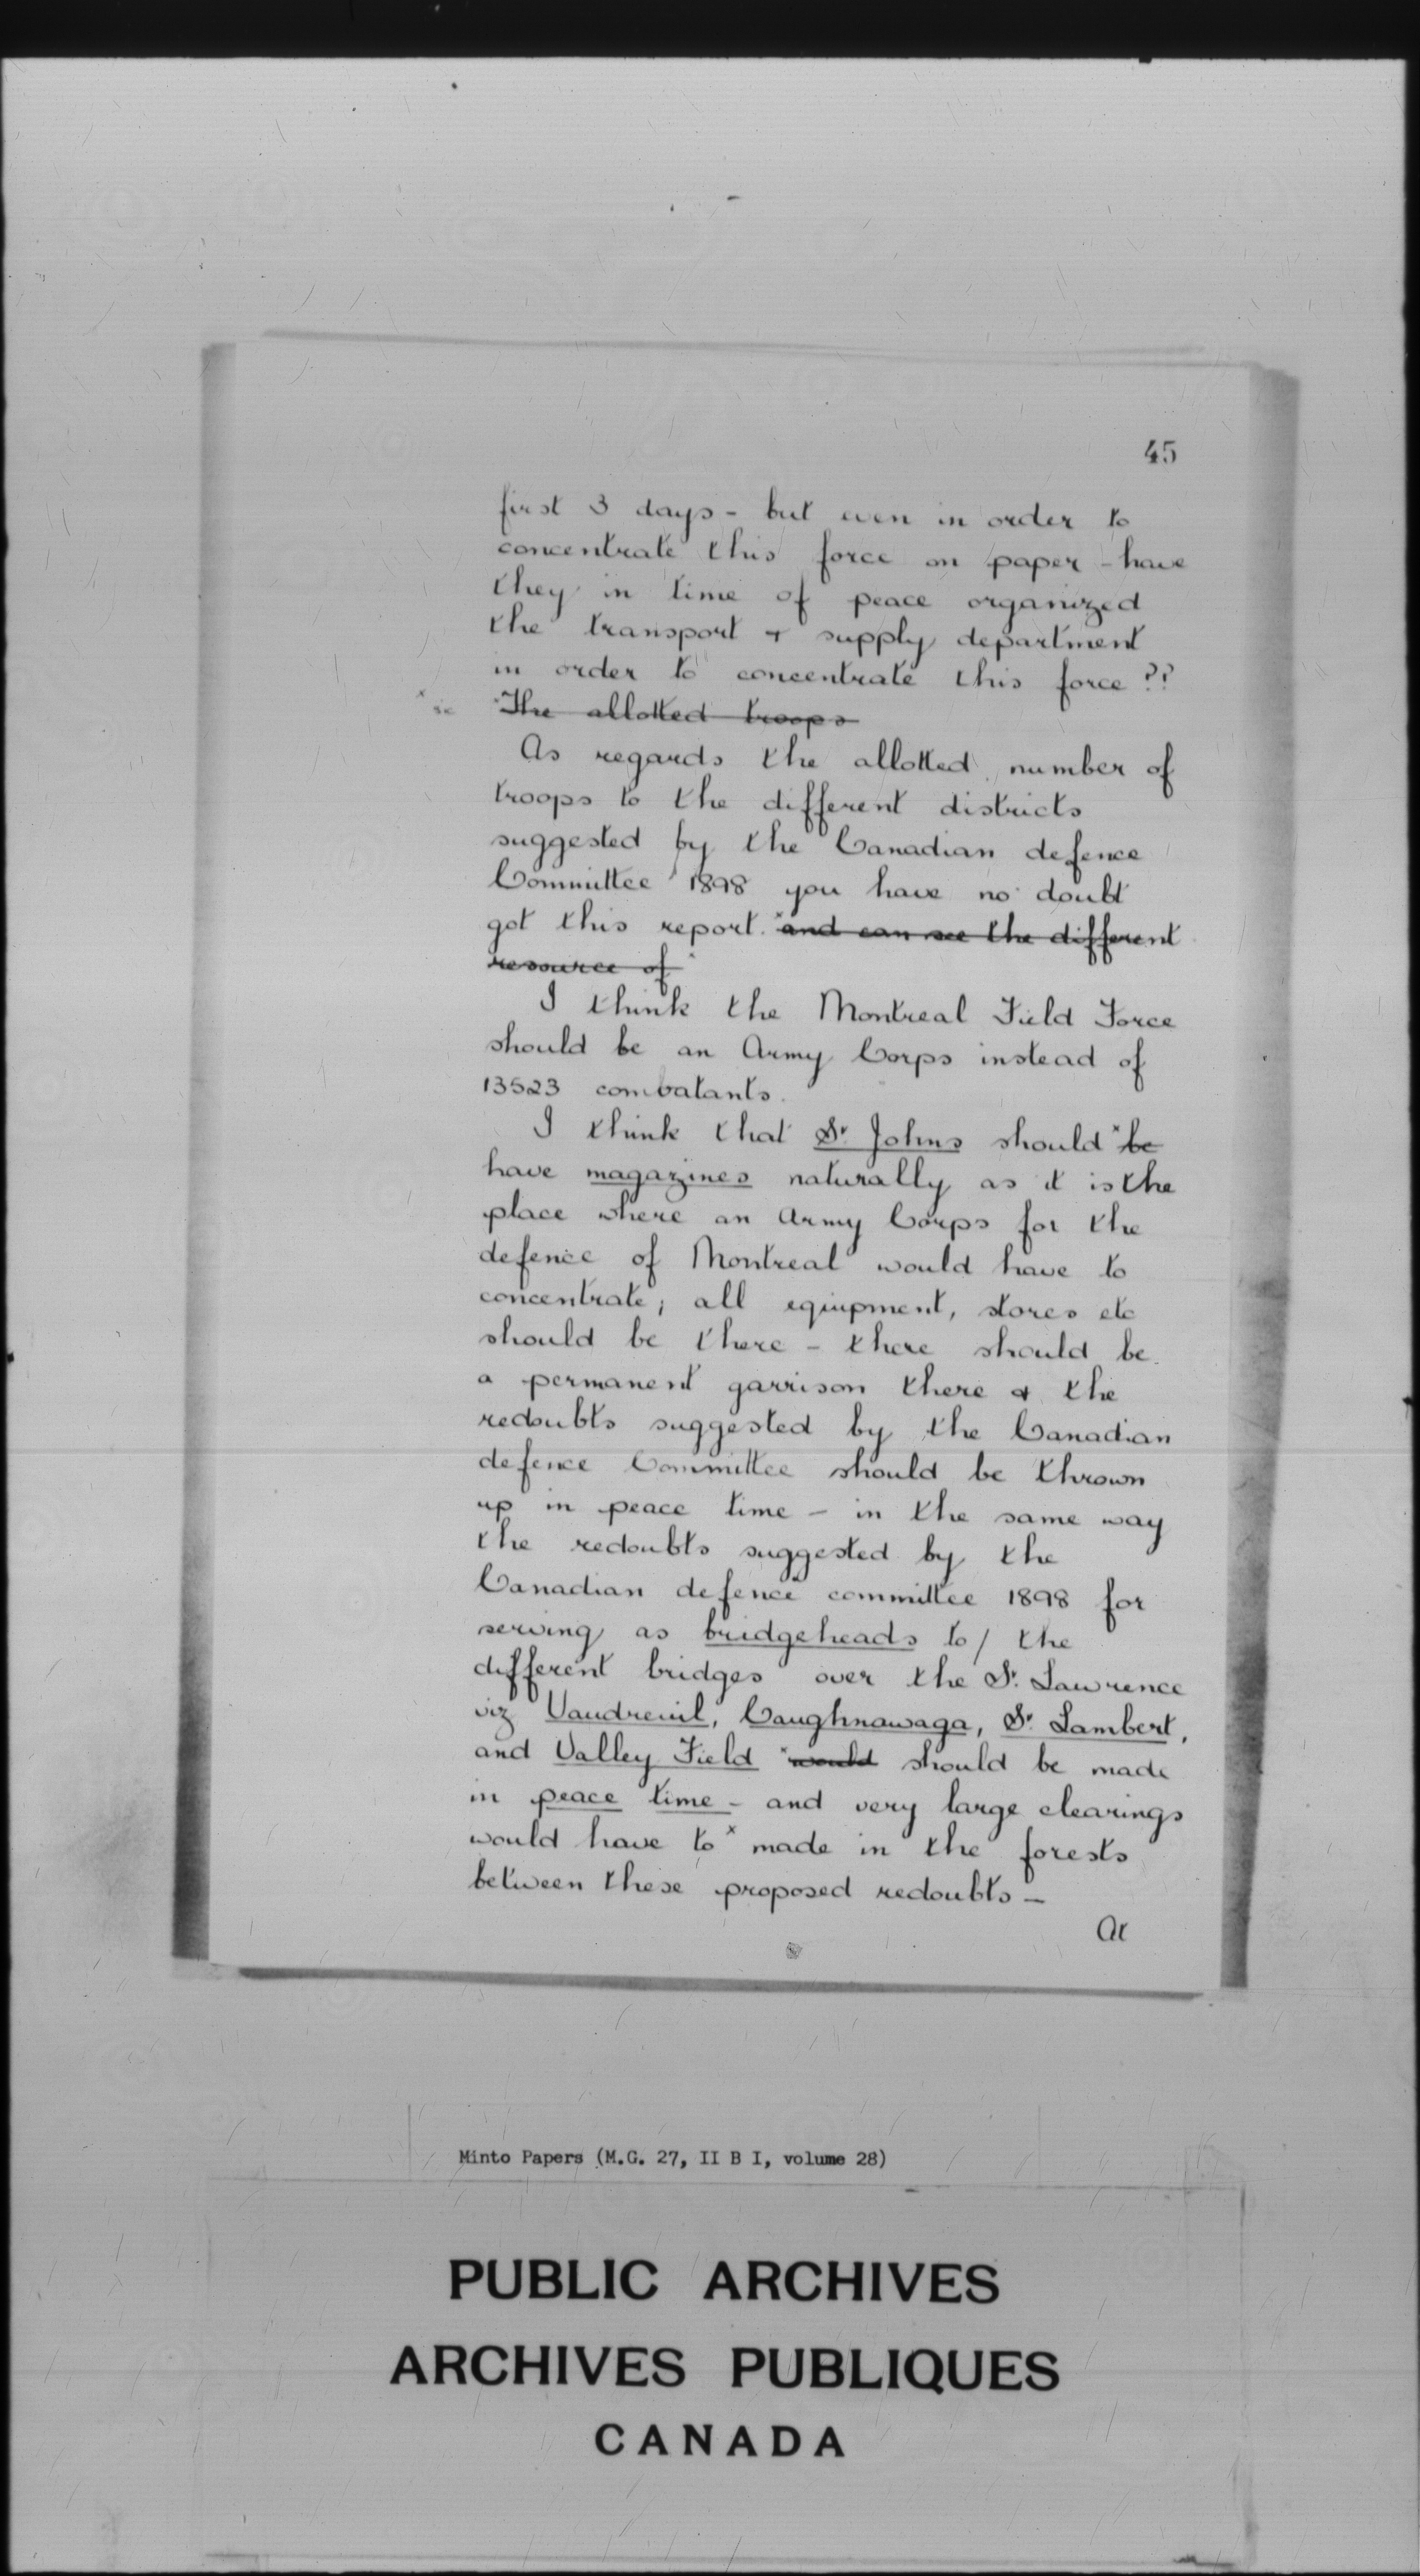 45
first 3 days - but even in order to
concentrate this force on paper - have
they in time of peace organized
the transport & supply department
in order to concentrate this force ??
x sic The allotted troops
As regards the allotted number of
troops to the different districts
suggested by the Canadian defence
Committee 1898 you have no doubt
got this report. x and can see the different
resource of x
I think the Montreal Field Force
should be an Army Corps instead of
13523 combatants.
I think that St. Johns should x be
have magazines naturally as it is the
place where an Army Corps for the
defence of Montreal would have to
concentrate; all equipment, stores etc
should be there - there should be
a permanent garrison there & the
redoubts suggested by the Canadian
defence Committee should be thrown
up in peace time - in the same way
the redoubts suggested by the
Canadian defence committee 1898 for
serving as bridgeheads to / the
different bridges over the St. Lawrence
viz Vaudreuil, Caughnawaga, St. Lambert,
and Valley Field x would should be made
in peace time - and very large clearings
would have to x made in the forests
between these proposed redoubts -
At
Minto Papers (M.G. 27, II B I, volume 28)
PUBLIC ARCHIVES
ARCHIVES PUBLIQUES
CANADA